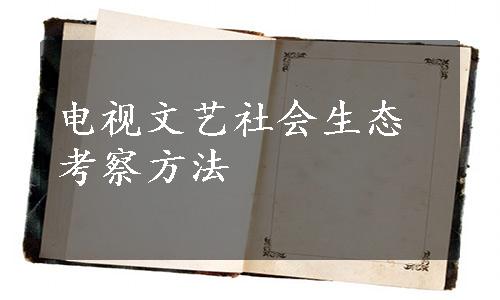 电视文艺社会生态
考察方法